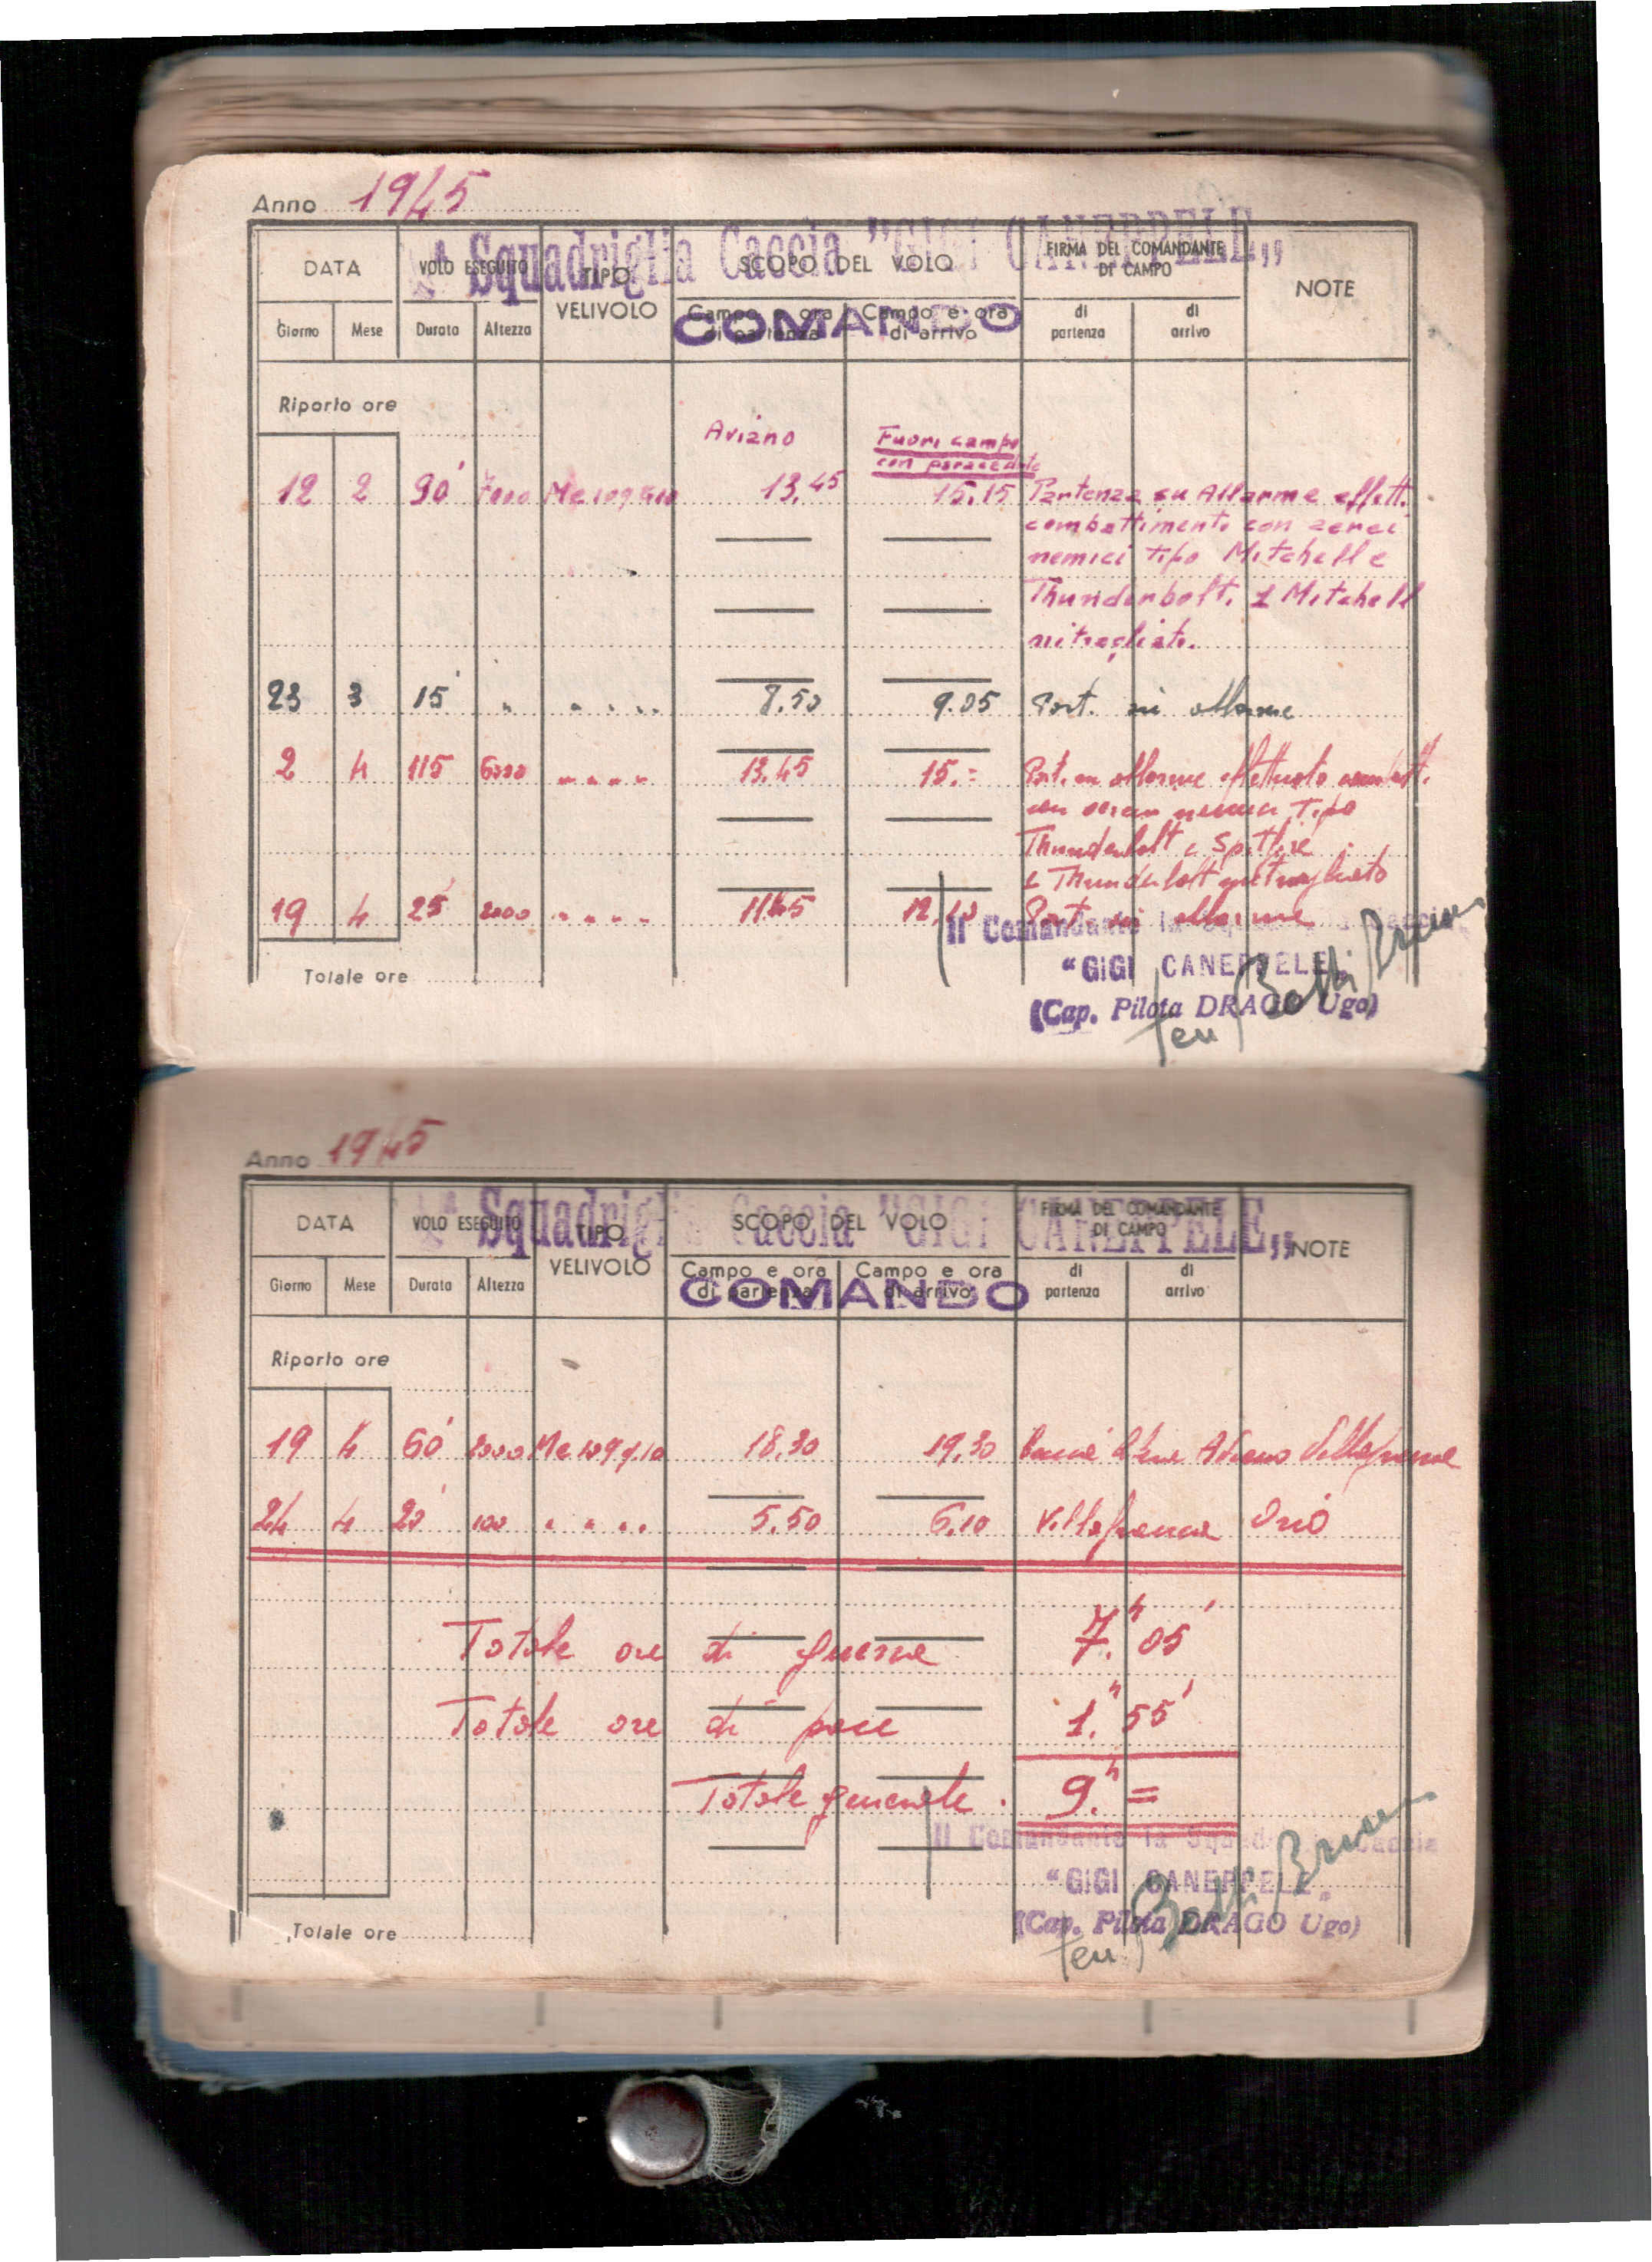 Anno 1945
ª Squadriglia Caccia "GIGI CANEPPELE„
DATA VOLO ESEGUITO TIPO VELIVOLO SCOPO DEL VOLO FIRMA DEL COMANDANTE DI CAMPO NOTE
COMANDO
Giorno Mese Durata Altezza Campo e ora di partenza Campo e ora di arrivo di partenza di arrivo
Riporto ore
Aviano Fuori campo
con paracadute
12 2 90' 7000 Me 109 G10 13,45 15,15 Partenza su Allarme effett.
combattimento con aerei
nemici tipo Mitchell e
Thunderbolt. 1 Mitchell
mitragliato.
23 3 15' " " " " " 8,50 9.05 Part. su allarme
2 4 115 6000 " " " " 13,45 15.= Part. su allarme effettuato combatt.
con aerei nemici Tipo
Thunderbolt e Spitfire
1 Thunderbolt mitragliato
19 4 25' 2000 " " " " 12,10 Part. su allarme
Il Comandante la Squadriglia Caccia
Totale ore
"GIGI CANEPPELE„
(Cap. Pilota DRAGO Ugo)
ten
Anno 1945
ª Squadriglia Caccia "GIGI CANEPPELE„
DATA VOLO ESEGUITO TIPO VELIVOLO SCOPO DEL VOLO FIRMA DEL COMANDANTE DI CAMPO NOTE
COMANDO
Giorno Mese Durata Altezza Campo e ora di partenza Campo e ora di arrivo di partenza di arrivo
Riporto ore
19 4 60' Me 109 g.10 18,30 19,30 Aviano Villafranca
24 4 20' 100 " " " " 5,50 6,10 Villafranca Orio
Totale ore di guerra 7.h 05'
Totale ore di pace 1.h 55'
Totale generale. 9.h =
Il Comandante la Squadriglia Caccia
"GIGI CANEPPELE„
Totale ore
(Cap. Pilota DRAGO Ugo)
ten